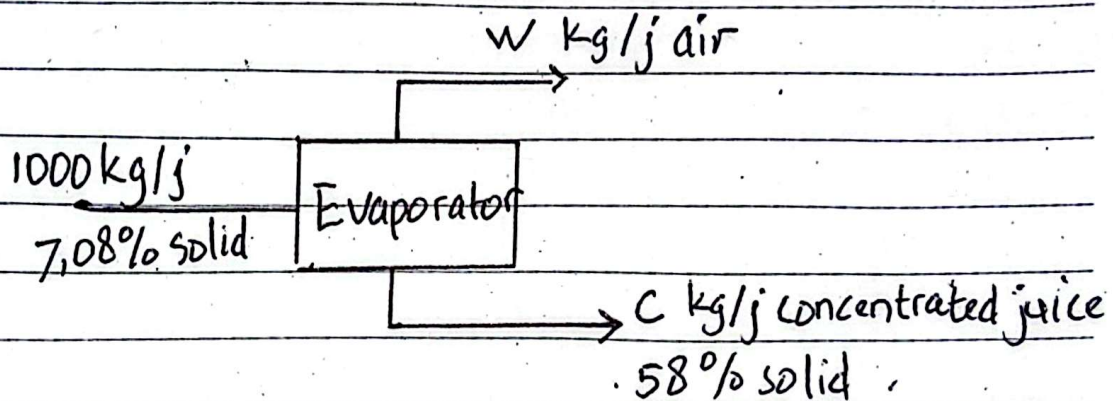 W kg/j air
1000 kg/j
7,08% solid
Evaporator
C kg/j concentrated juice
58% solid